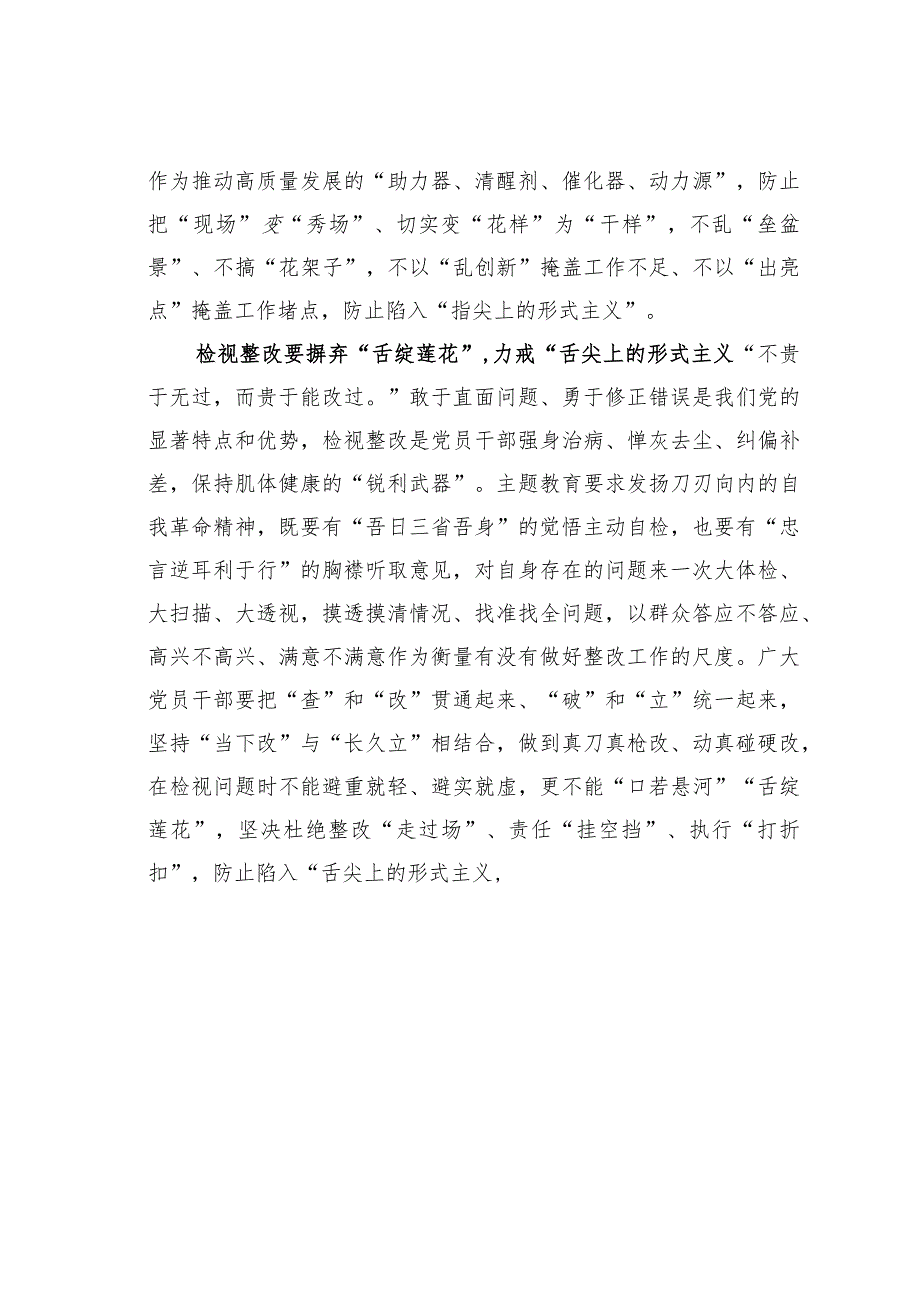 作为推动高质量发展的“助力器、清醒剂、催化器、动力源”，防止
把“现场”变“秀场”、切实变“花样”为“干样”，不乱“垒盆
景”、不搞“花架子”，不以“乱创新”掩盖工作不足、不以“出亮
点”掩盖工作堵点，防止陷入“指尖上的形式主义”。
检视整改要摒弃“舌绽莲花”,力戒“舌尖上的形式主义“不贵
于无过，而贵于能改过。”敢于直面问题、勇于修正错误是我们党的
显著特点和优势，检视整改是党员干部强身治病、惮灰去尘、纠偏补
差，保持肌体健康的“锐利武器”。主题教育要求发扬刀刃向内的自
我革命精神，既要有“吾日三省吾身”的觉悟主动自检，也要有“忠
言逆耳利于行”的胸襟听取意见，对自身存在的问题来一次大体检、
大扫描、大透视，摸透摸清情况、找准找全问题，以群众答应不答应、
高兴不高兴、满意不满意作为衡量有没有做好整改工作的尺度。广大
党员干部要把“查”和“改”贯通起来、“破”和“立”统一起来，
坚持“当下改”与“长久立”相结合，做到真刀真枪改、动真碰硬改，
在检视问题时不能避重就轻、避实就虚，更不能“口若悬河”“舌绽
莲花”，坚决杜绝整改“走过场”、责任“挂空挡”、执行“打折
扣”，防止陷入“舌尖上的形式主义,